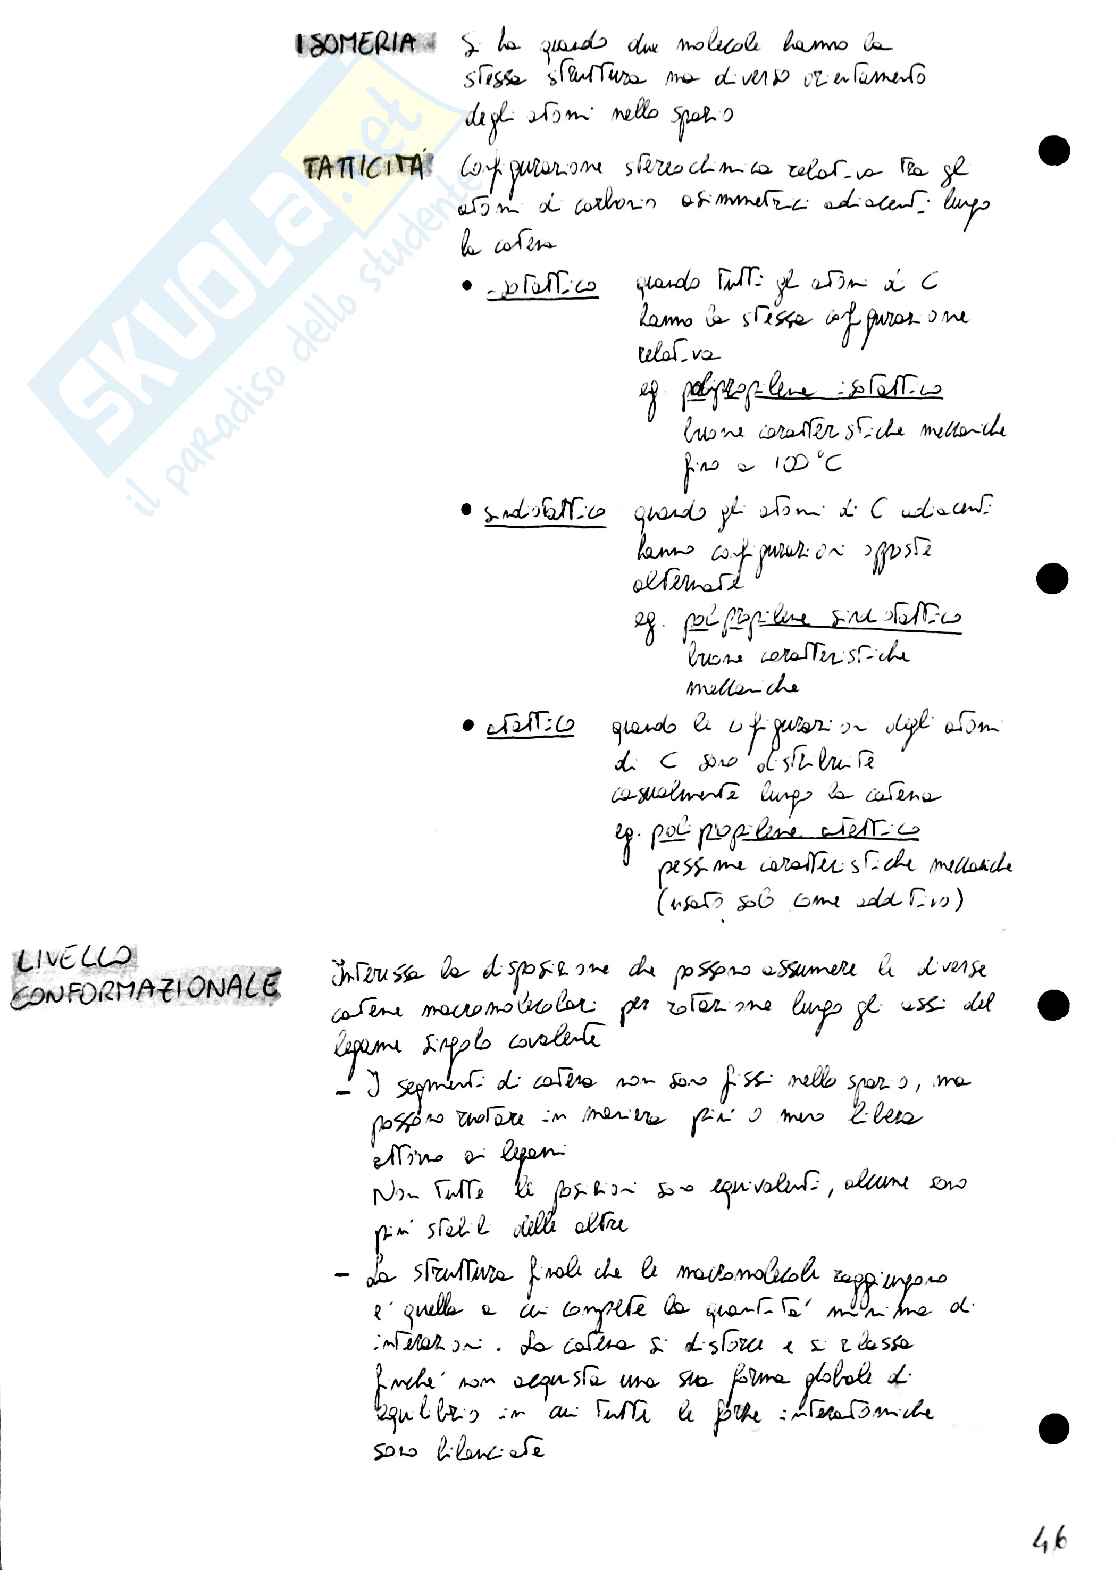 ISOMERIA Si ha quando due molecole hanno la
stessa struttura ma diverso orientamento
degli atomi nello spazio
TATTICITÀ Configurazione stereochimica relativa tra gli
atomi di carbonio asimmetrici adiacenti lungo
la catena
• isotattico quando tutti gli atomi di C
hanno la stessa configurazione
relativa
eg. polipropilene isotattico
buone caratteristiche meccaniche
fino a 100°C
• sindiotattico quando gli atomi di C adiacenti
hanno configurazioni opposte
alternate
eg. polipropilene sindiotattico
buone caratteristiche
meccaniche
• atattico quando le configurazioni degli atomi
di C sono distribuite
casualmente lungo la catena
eg. polipropilene atattico
pessime caratteristiche meccaniche
(usato solo come additivo)
LIVELLO
CONFORMAZIONALE Interessa la disposizione che possono assumere le diverse
catene macromolecolari per rotazione lungo gli assi del
legame singolo covalente
– I segmenti di catena non sono fissi nello spazio, ma
possono ruotare in maniera più o meno libera
attorno ai legami
Non tutte le posizioni sono equivalenti, alcune sono
più stabili delle altre
– La struttura finale che le macromolecole raggiungono
e' quella a cui compete la quantita' minima di
interazioni. La catena si distorce e si rilassa
finché non acquista una sua forma globale di
equilibrio in cui tutte le forze interatomiche
sono bilanciate
46
SKUOLA.net
il paradiso dello studente